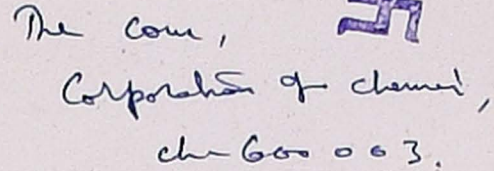 The Com,
Corporation of Chennai,
Ch-600 003.